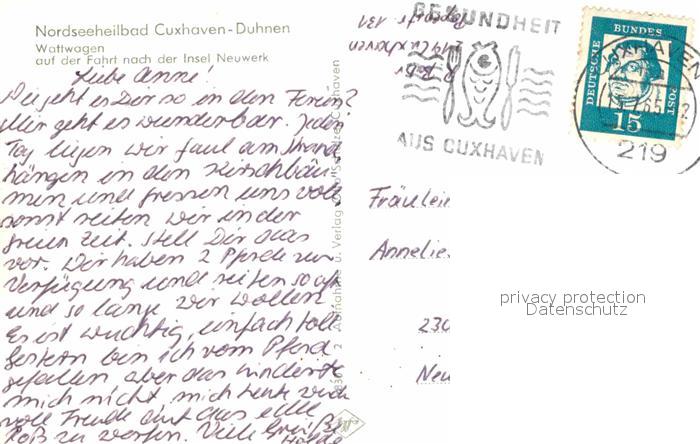 Nordseeheilbad Cuxhaven-Duhnen
Wattwagen
auf der Fahrt nach der Insel Neuwerk
Liebe Anne!
Wie geht es Dir so in den Ferien?
Mir geht es wunderbar. Jeden
Tag liegen wir faul am Strand
hängen in den Kirschbäu-
men und fressen uns voll,
sonst reiten wir in der
freien Zeit. Stell Dir das
vor. Wir haben 2 Pferde zur
Verfügung und reiten so oft
und so lange wir wollen.
Es ist wuchtig, einfach toll
Gestern bin ich vom Pferd
gefallen aber das hinderte
mich nicht mich heute
voll Freude auf das edle
Roß zu werfen. Viele Grüße
GESUNDHEIT
AUS CUXHAVEN
CUXHAVEN
219
DEUTSCHE
BUNDES
POST
15
Fräulein
Annelie
230
Neu
Aufnahme u. Verlag
privacy protection
Datenschutz